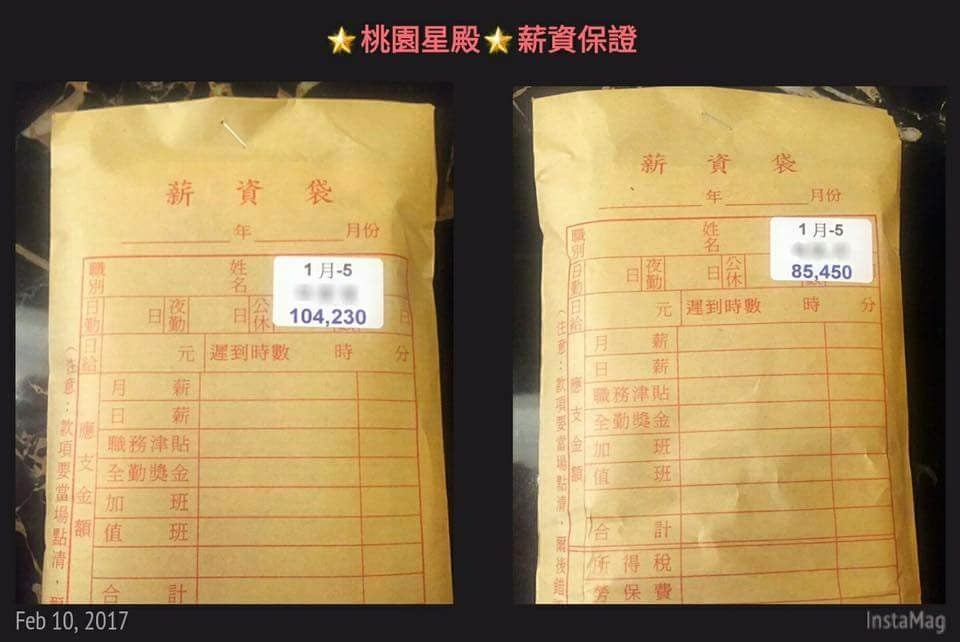 ⭐桃園星殿⭐薪資保證
薪資袋
年 月份
職別 姓名
1月-5
104,230
日勤 日 夜勤 日 公休
日給 元 遲到時數 時 分
(注意：款項要當場點清，
應支金額
月薪
日薪
職務津貼
全勤獎金
加班
值班
合計
薪資袋
年 月份
職別 姓名
1月-5
85,450
日勤 日 夜勤 日 公休
日給 元 遲到時數 時 分
(注意：款項要當場點清，爾後錯
應支金額
月薪
日薪
職務津貼
全勤獎金
加班
值班
合計
所得稅
勞保費
Feb 10, 2017
InstaMag